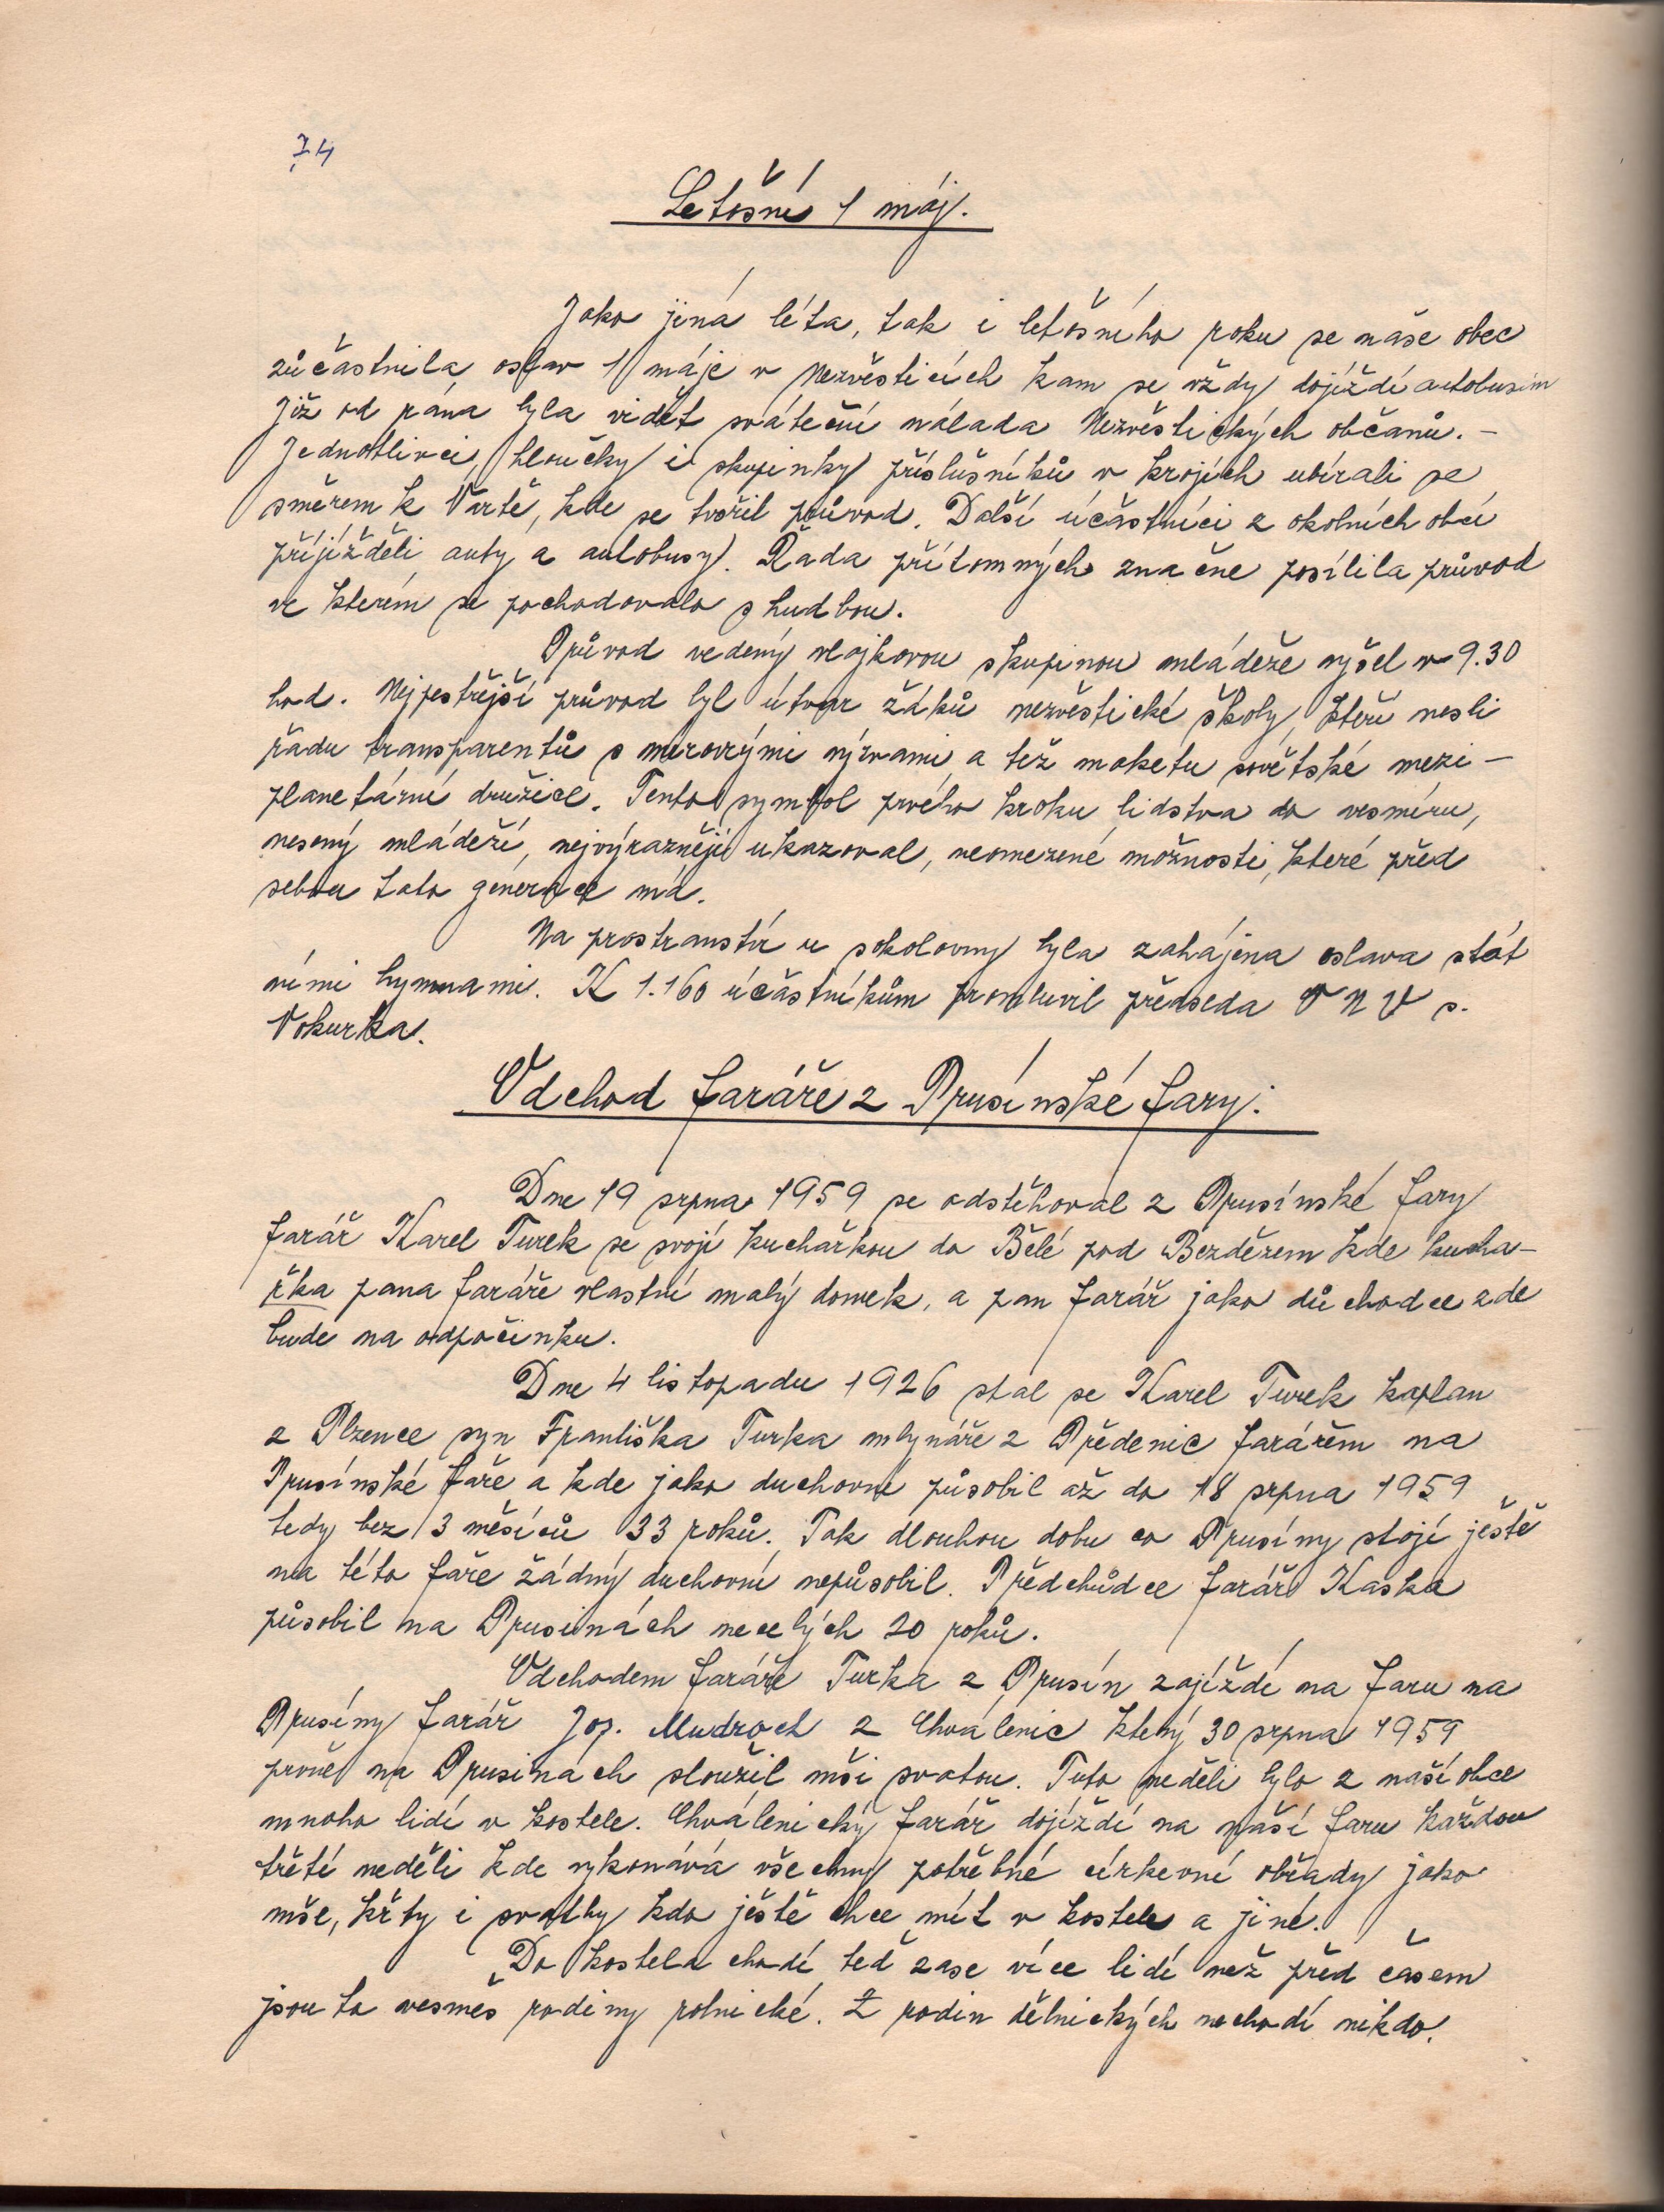 74
Letošní 1 máj.
Jako jiná léta, tak i letošního roku se naše obec
zůčástnila oslav 1 máje v Nezvěsticích kam se vždy dojíždí autobusem
Již od rána byla vidět sváteční nálada Nezvěstických občanů. –
Jednotlivci, hloučky i skupinky příslušníků v krojích ubírali se
směrem k Vartě, kde se tvořil průvod. Další účastníci z okolních obcí
přijížděli auty a autobusy. Řada přítomných značně posílila průvod
ve kterém se pochodovalo s hudbou.
Průvod vedený vlajkovou skupinou mládeže vyšel v 9.30
hod. Nejpestřejší průvod byl útvar žáků nezvěstické školy, kteří nesli
řadu transparentů s mírovými výzvami a též maketu sovětské mezi –
planetární družice. Tento symbol prvého kroku lidstva do vesmíru,
nesený mládeží, nejvýrazněji ukazoval, neomezené možnosti, které před
sebou tato generace má.
Na prostranství u sokolovny byla zahájena oslava stát
ními hymnami. K 1.160 účástníkům promluvil předseda ONV s.
Vokurka.
Odchod faráře z Prusínské fary.
Dne 19 srpna 1959 se odstěhoval z Prusínské fary
farář Karel Turek se svojí kuchařkou do Bělé pod Bezdězem kde kucha –
řka pana faráře vlastní malý domek, a pan farář jako důchodce zde
bude na odpočinku.
Dne 4 listopadu 1926 stal se Karel Turek kaplan
z Plzence syn Františka Turka mlynáře z Předenic farářem na
Prusínské faře a kde jako duchovní působil až do 18 srpna 1959
tedy bez 3 měsíců 33 roků. Tak dlouhou dobu co Prusíny stojí ještě
na této faře žádný duchovní nepůsobil. Předchůdce farář Kaska
působil na Prusinách necelých 20 roků.
Odchodem faráře Turka z Prusín zajíždí na faru na
Prusíny farář Jos. Mudroch z Chválenic který 30 srpna 1959
prvně na Prusinách sloužil mši svatou. Tuto neděli bylo z naší obce
mnoho lidí v kostele. Chválenický farář dojíždí na naší faru každou
třetí neděli kde vykonává všechny potřebné církevní obřady jako
mše, křty i svatby kdo ještě chce mít v kostele a jiné.
Do kostela chodí teď zase více lidí než před časem
jsou to vesměs rodiny rolnické. Z rodin dělnických nechodí nikdo.